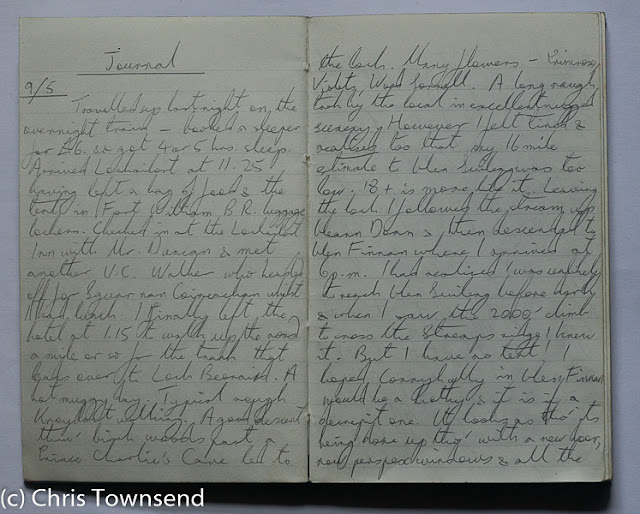 Journal
9/5
Travelled up last night on the
overnight train — booked a sleeper
for £6. so got 4 or 5 hrs. sleep.
Arrived Lochailort at 11.25
having left a bag of food & the
tent in Fort William B.R. luggage
lockers. Checked in at the Lochailort
Inn with Mr. Duncan & met
another U.C. Walker who headed
off for Sgurr nan Coireachan whilst
I had lunch. I finally left the
hotel at 1.15 to walk up the road
a mile or so for the track that
goes over to Loch Beoraid. A
hot muggy day. Typical rough
Knoydart walking. A good descent
thro' birch woods past a
Prince Charlie's Cave led to
the loch. Many flowers — Primrose,
Violets, Wood Sorrell. A long rough
track by the loch in excellent rugged
scenery. However I felt tired &
realised too that my 16 mile
estimate to Glen Suileag was too
low. 18+ is more like it. Leaving
the loch I followed the stream up
Donn & then descended to
Glen Finnan where I arrived at
6p.m. I had realised I was unlikely
to reach Glen Suileag before dark
& when I saw the 2000' climb
to cross the Streaps ridge I knew
it. But I have no tent! I
hoped Corryhully in Glen Finnan
would be a bothy & it is if a
decrepit one. It looks as tho' its
being done up tho' with a new door,
new perspex windows & all the
(c) Chris Townsend